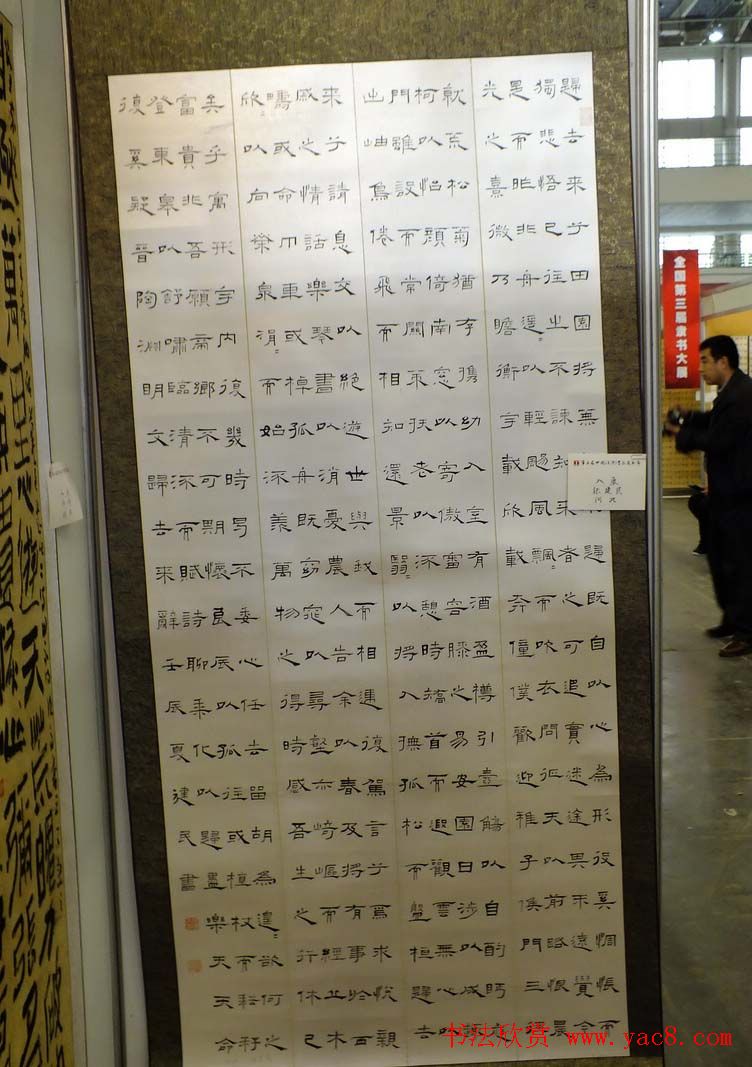 歸去来兮田園将蕪歸既自以心為形役奚惆悵而
獨悲悟已往之不諫知来者之可追實迷途其未遠覺今
是而昨非舟遥〻以輕颺風飄〻而吹衣問征夫以前路恨晨
光之熹微乃瞻衡宇載欣載奔僮僕歡迎稚子候門三逕
就荒松菊猶存攜幼入室有酒盈樽引壺觴以自酌眄庭
柯以怡顔倚南窓以寄傲審容膝之易安園日涉以成趣
門雖設而常關策扶老以流憩時矯首而遐觀雲無心以
出岫鳥倦飛而相知還景翳〻以将入撫孤松而盤桓歸去
来兮請息交以絶遊世與我而相違復駕言兮焉求悦親
感之情話樂琴書以消憂農人告余以春及将有事於西
疇〻或命巾車或棹孤舟既窈窕以尋壑亦崎嶇而經丘木
欣〻以向榮泉涓〻而始流羨萬物之得時感吾生之行休已
矣乎寓形宇内復幾時曷不委心任去留胡為遑〻欲何之
富貴非吾願帝鄉不可期懷良辰以孤往或植杖而耘耔
登東皋以舒嘯臨清流而賦詩聊乘化以歸盡樂夫天命
復奚疑晉陶淵明文歸去来辭壬辰夏建民書
入展
張建民
河北
全国第三届隶书大展
书法欣赏 www.yac8.com